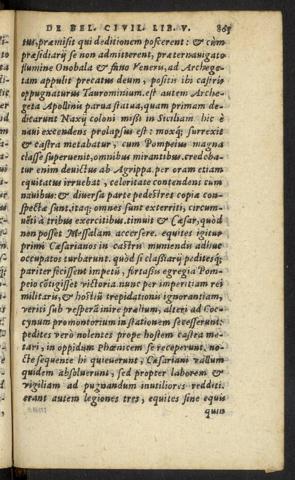 DE BEL. CIVIL. LIB. V. 865
tus, præmisit qui deditionem poscerent: & cùm
præsidiarij se non admitterent, præternauigato
flumine Onobala & fano Veneris, ad Archege-
tam appulit precatus deum, positis ibi castris
oppugnaturus Taurominium. est autem Arche-
geta Apollinis parua statua, quam primam de-
dicarunt Naxij coloni missi in Siciliam hic è
naui exscendens prolapsus est: moxq; surrexit
& castra metabatur, cum Pompeius magna
classe superuenit, omnibus mirantibus. credeba-
tur enim deuictus ab Agrippa. per oram etiam
equitatus irruebat, celeritate contendens cum
nauibus: & diuersa parte pedestres copiæ con-
spectæ sunt. itaq; omnes sunt exterriti, circum-
uenti à tribus exercitibus. timuit & Cæsar, quòd
non posset Messalam accersere. equites igitur
primi Cæsarianos in castris muniendis adhuc
occupatos turbarunt. quòd si classiarij peditesq;
pariter fecissent impetũ, fortaßis egregia Pom-
peio cõtigisset victoria nunc per imperitiam rei
militaris, & hostiũ trepidationis ignorantiam,
veriti sub vesperã inire prælium, alteri ad Coc-
cynum promontorium in stationem secesserunt:
pedites verò nolentes prope hostem castra me-
tari, in oppidum Phœnicem se receperunt. no-
cte sequente hi quieuerunt, Cæsariani vallum
quidem absoluerunt, sed propter laborem &
vigiliam ad pugnandum inutiliores redditi.
erant autem legiones tres, equites sine equis
quin